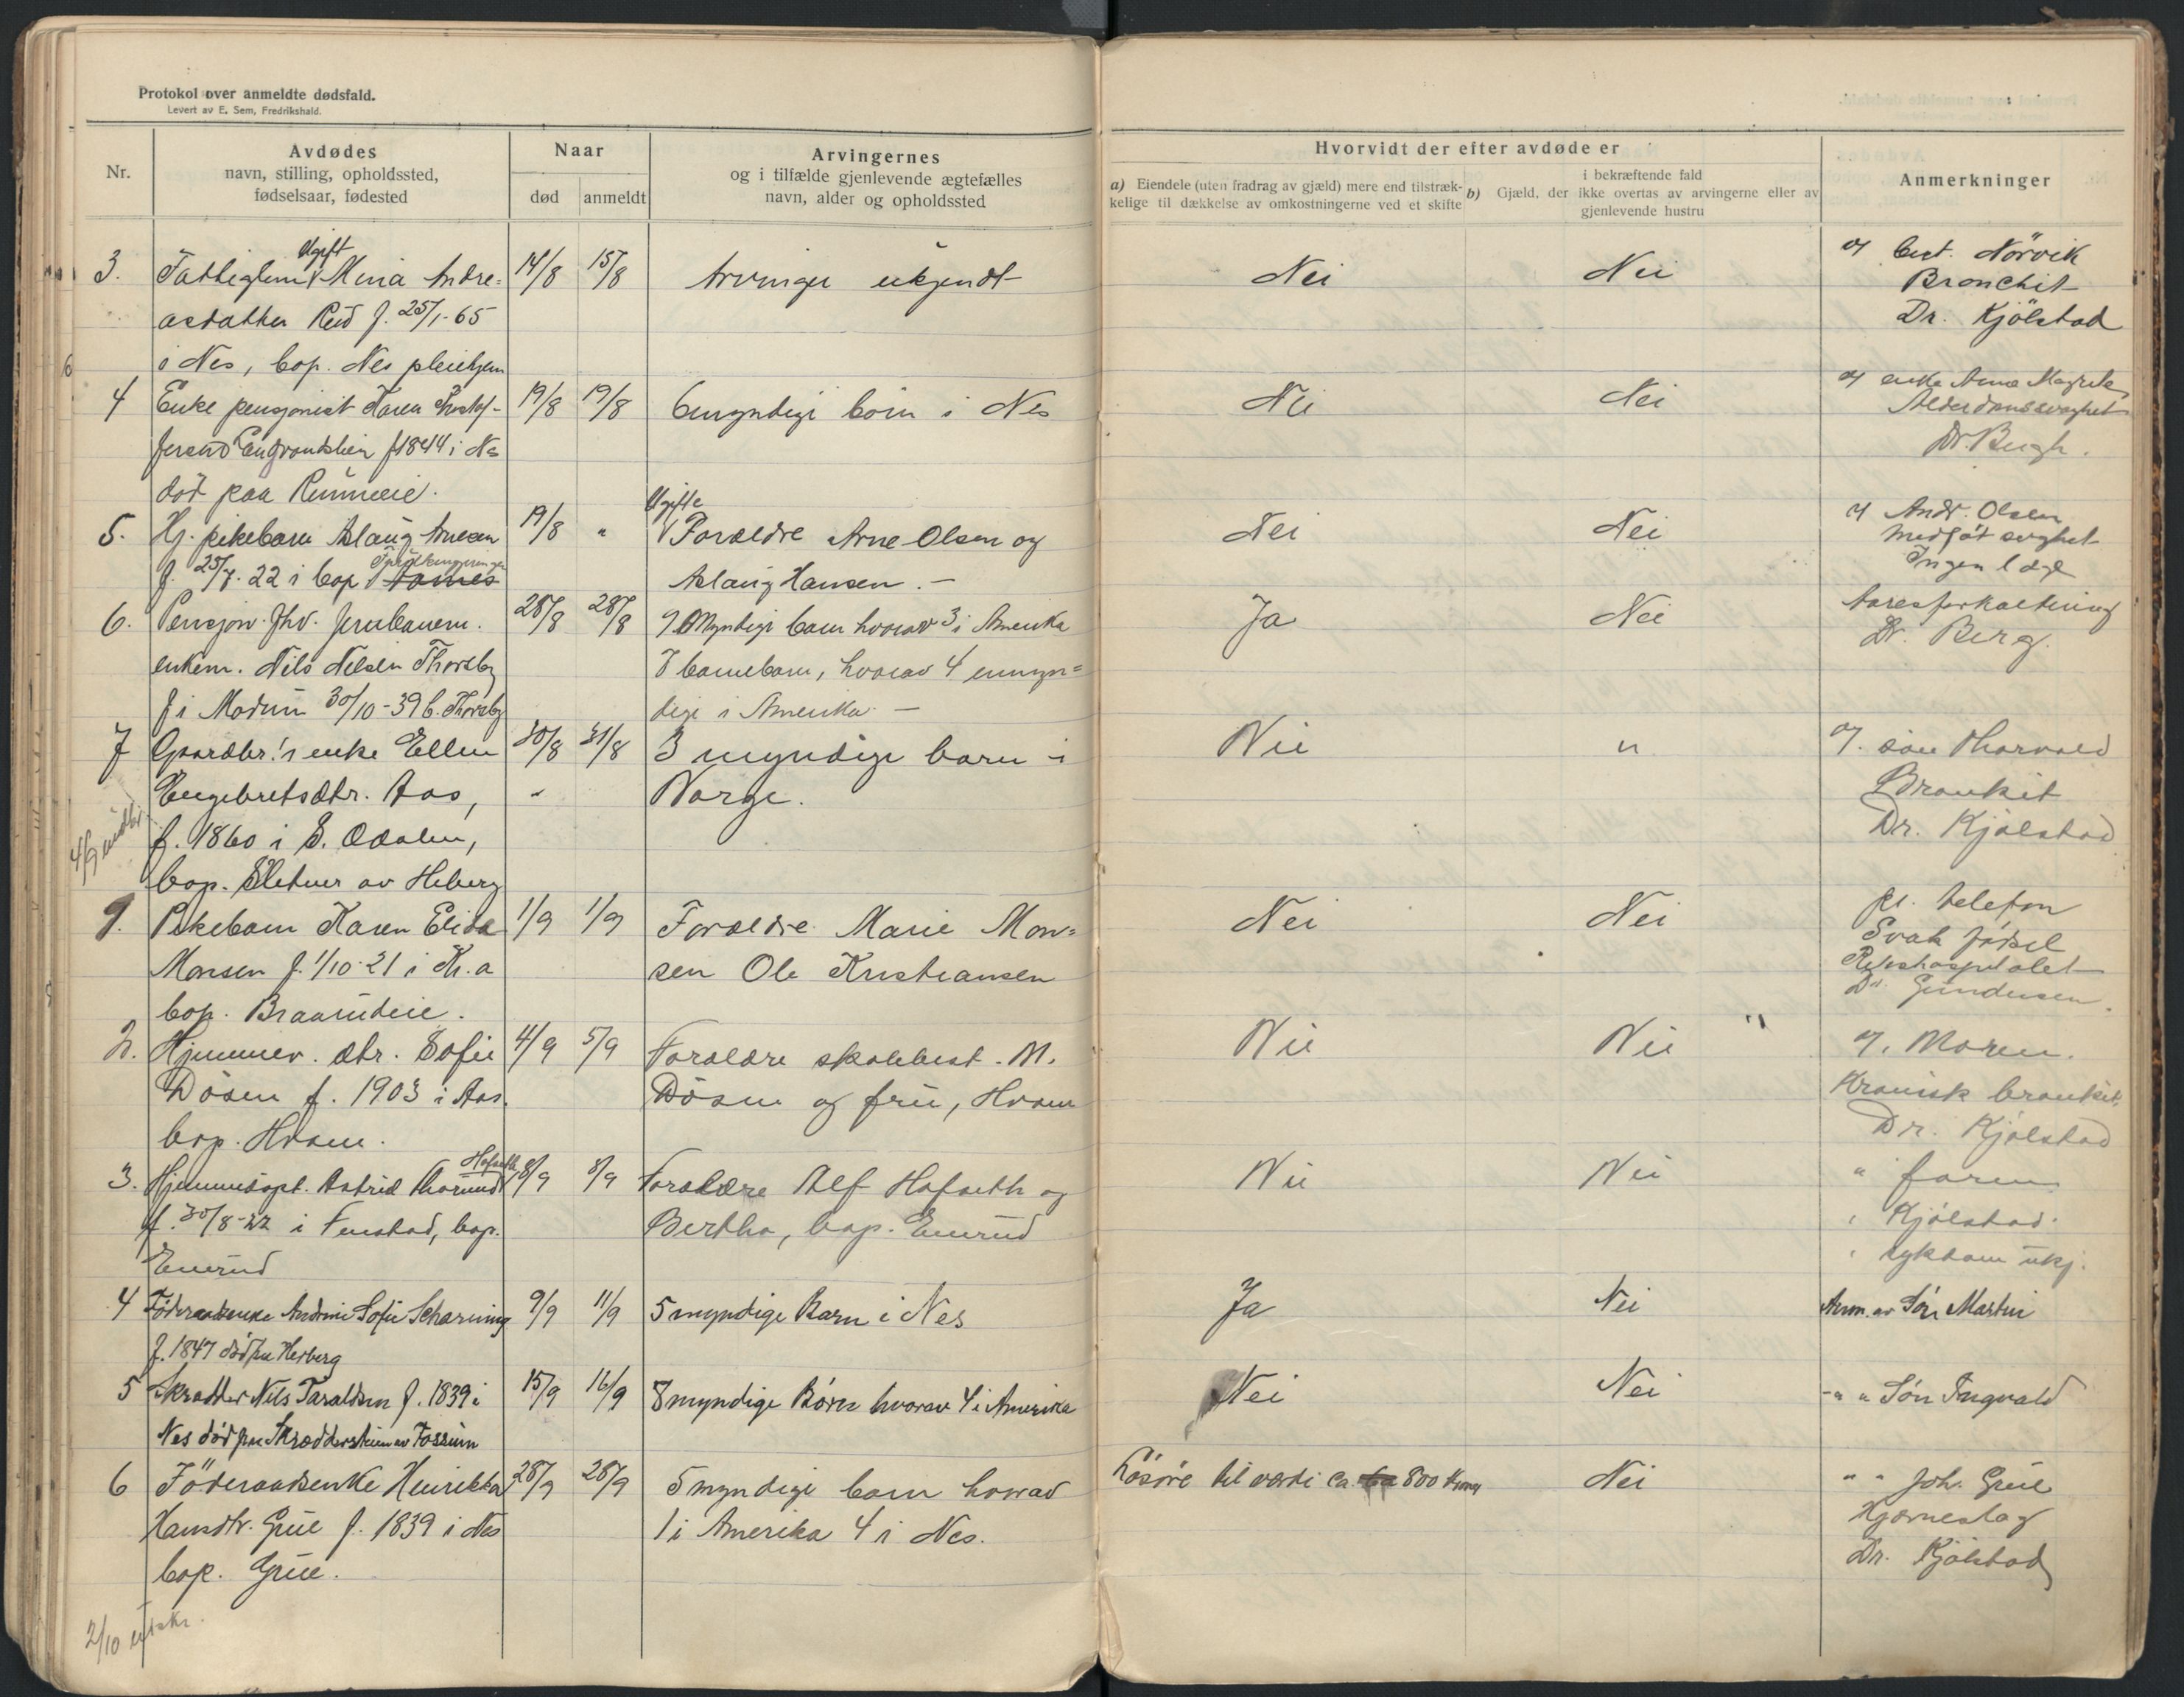 Protokol over anmeldte dødsfald.
Levert av E. Sem, Fredrikshald.
Nr.
Avdødes
navn, stilling, opholdssted,
fødselsaar, fødested
Naar
død
anmeldt
Arvingernes
og i tilfælde gjenlevende ægtefælles
navn, alder og opholdssted
Hvorvidt der efter avdøde er
a) Eiendele (uten fradrag av gjæld) mere end tilstræk-
kelige til dækkelse av omkostningerne ved et skifte
i bekræftende fald
b) Gjæld, der ikke overtas av arvingerne eller av
gjenlevende hustru
Anmerkninger
3. Fattiglem Ugift Mina Andre=
asdatter Rud f. 25/1-65
i Nes, bop. Nes pleiehjem
14/8 15/8
Arvinger ukjendt
Nei Nei
af Best. Nörvik
Bronchit
Dr. Kjölstad
4 Enke pensjonist Karen
f 1844 i Nes
död paa
19/8 19/8
6 myndige börn i Nes
Nei Nei
af enke Anne
Alderdomssvaghet
Dr.
5. Hj. pikebarn Aslaug Arnesen
f. 25/7. 22 i bop
19/8 "
Ugifte
Forældre Arne Olsen og
Aslaug Hansen. -
Nei Nei
af Andr. Olsen
Medföt svaghet
Ingen læge
6. Pensjon. fhv. jernbanem.
enkem. Nils Nelsen Thorsby
f i Modum 30/10-39 b. Thorsby
28/8 28/8
9 Myndige barn hvorav 3 i Amerika
8 barnebarn, hvorav 4 enmyn=
dige i Amerika. -
Ja Nei
Aareforkalkning
Dr. Berg.
7 Gaardbr.'s enke Ellen
Engebretsdtr. Aas,
f. 1860 i S. Odalen,
bop. Sletner av Heberg
30/8 31/8
3 myndige barn i
Norge.
Nei "
af. søn Thorvald
Bronkit
Dr. Kjølstad
4/9
1. Pikebarn Karen Elida
Monsen f. 1/10-21 i Kr.a
bop. Braarudeie.
1/9 1/9
Forældre Marie Mon=
sen Ole Kristiansen
Nei Nei
pr. telefon
Svak födsel
Rikshospitalet
Dr. Gundersen.
2. Hjemmev. dtr. Sofie
Døsen f. 1903 i Aas.
bop. Hvam.
4/9 5/9
Forældre skolebest. M.
Døsen og frue, Hvam
Nei Nei "
af. Moren.
Kronisk bronkit.
Dr. Kjølstad
3. Hjemmedøpt. Astrid Thorund Hofseth
f. 30/8-22 i Fenstad, bop.
Enerud
8/9 8/9
Forældre Alf Hofseth og
Bertha, bop. Enerud
Nei Nei
" faren
" Kjølstad.
" sykdom ukj.
4 Föderaadsenke Andrine Sofie Scharning
f. 1847 död paa Herberg
9/9 11/9
5 myndige Barn i Nes
Ja Nei
Anm. av Sön Martin
5 Skrædder Nils Taraldsen f. 1839 i
Nes död paa Skrædderstuen av Fossum
15/9 16/9
8 myndige Börn hvorav 4 i Amerika
Nei Nei
-" " Sön Ingvald
6 Föderaadsenke Henrikka
Hansdtr. Grue f. 1839 i Nes
bop. Grue.
28/9 28/9
5 myndige barn hvorav
1 i Amerika 4 i Nes.
Lösöre til værdi ca. 800 kroner
Nei
" " Joh. Grue
Hjærneslag
Dr. Kjølstad
2/10 utskr.